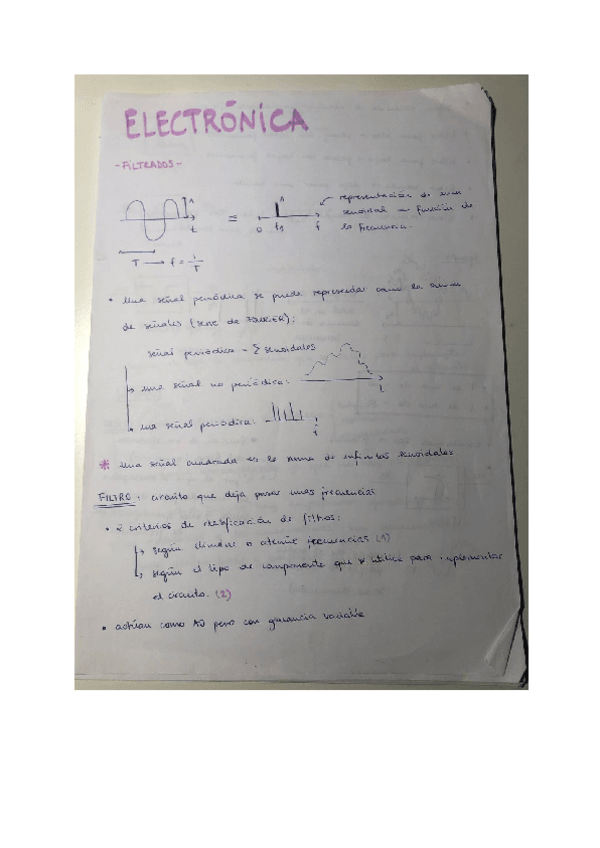 ELECTRÓNICA
-FILTRADOS-
representación de una
senoidal en función de
la frecuencia.
A
t
=
0 f1 f
T → f = 1/T
• Una señal periódica se puede representar como la suma
de señales (serie de FOURIER):
señal periódica = ∑ senoidales
↳ una señal no periódica:
t
↳ una señal periódica:
f
* Una señal cuadrada es la suma de infinitas senoidales
FILTRO: circuito que deja pasar unas frecuencias
• 2 criterios de clasificación de filtros:
↳ según elimine o atenúe frecuencias (1)
↳ según el tipo de componente que se utilice para implementar
el circuito. (2)
• actúan como AO pero con ganancia variable